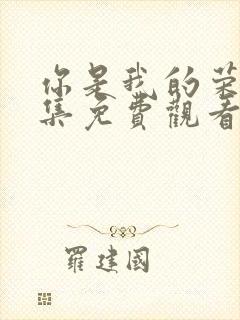 你是我的荣
集免費觀看
羅建國